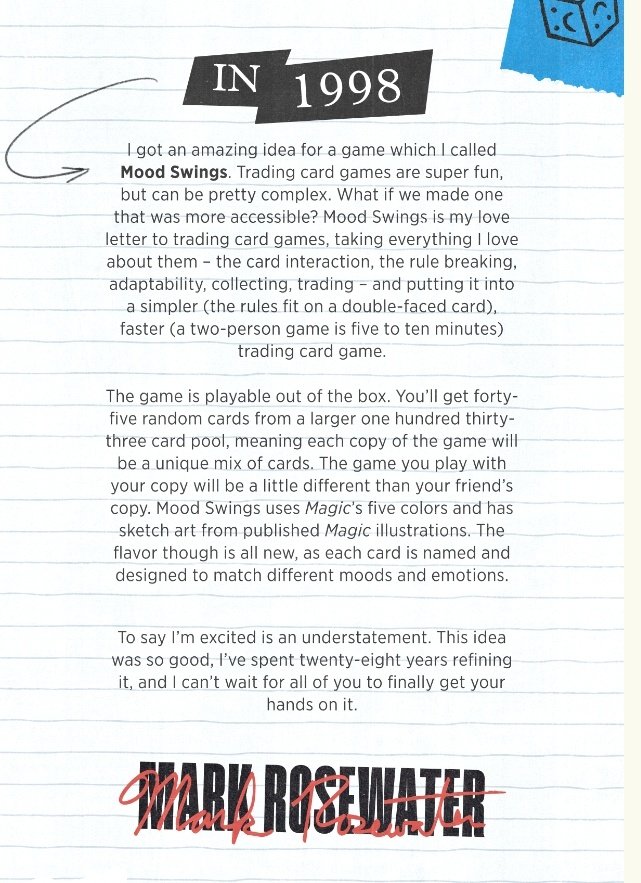 IN 1998
I got an amazing idea for a game which I called
Mood Swings. Trading card games are super fun,
but can be pretty complex. What if we made one
that was more accessible? Mood Swings is my love
letter to trading card games, taking everything I love
about them – the card interaction, the rule breaking,
adaptability, collecting, trading – and putting it into
a simpler (the rules fit on a double-faced card),
faster (a two-person game is five to ten minutes)
trading card game.
The game is playable out of the box. You'll get forty-
five random cards from a larger one hundred thirty-
three card pool, meaning each copy of the game will
be a unique mix of cards. The game you play with
your copy will be a little different than your friend's
copy. Mood Swings uses Magic's five colors and has
sketch art from published Magic illustrations. The
flavor though is all new, as each card is named and
designed to match different moods and emotions.
To say I'm excited is an understatement. This idea
was so good, I've spent twenty-eight years refining
it, and I can't wait for all of you to finally get your
hands on it.
MARK ROSEWATER
Mark Rosewater